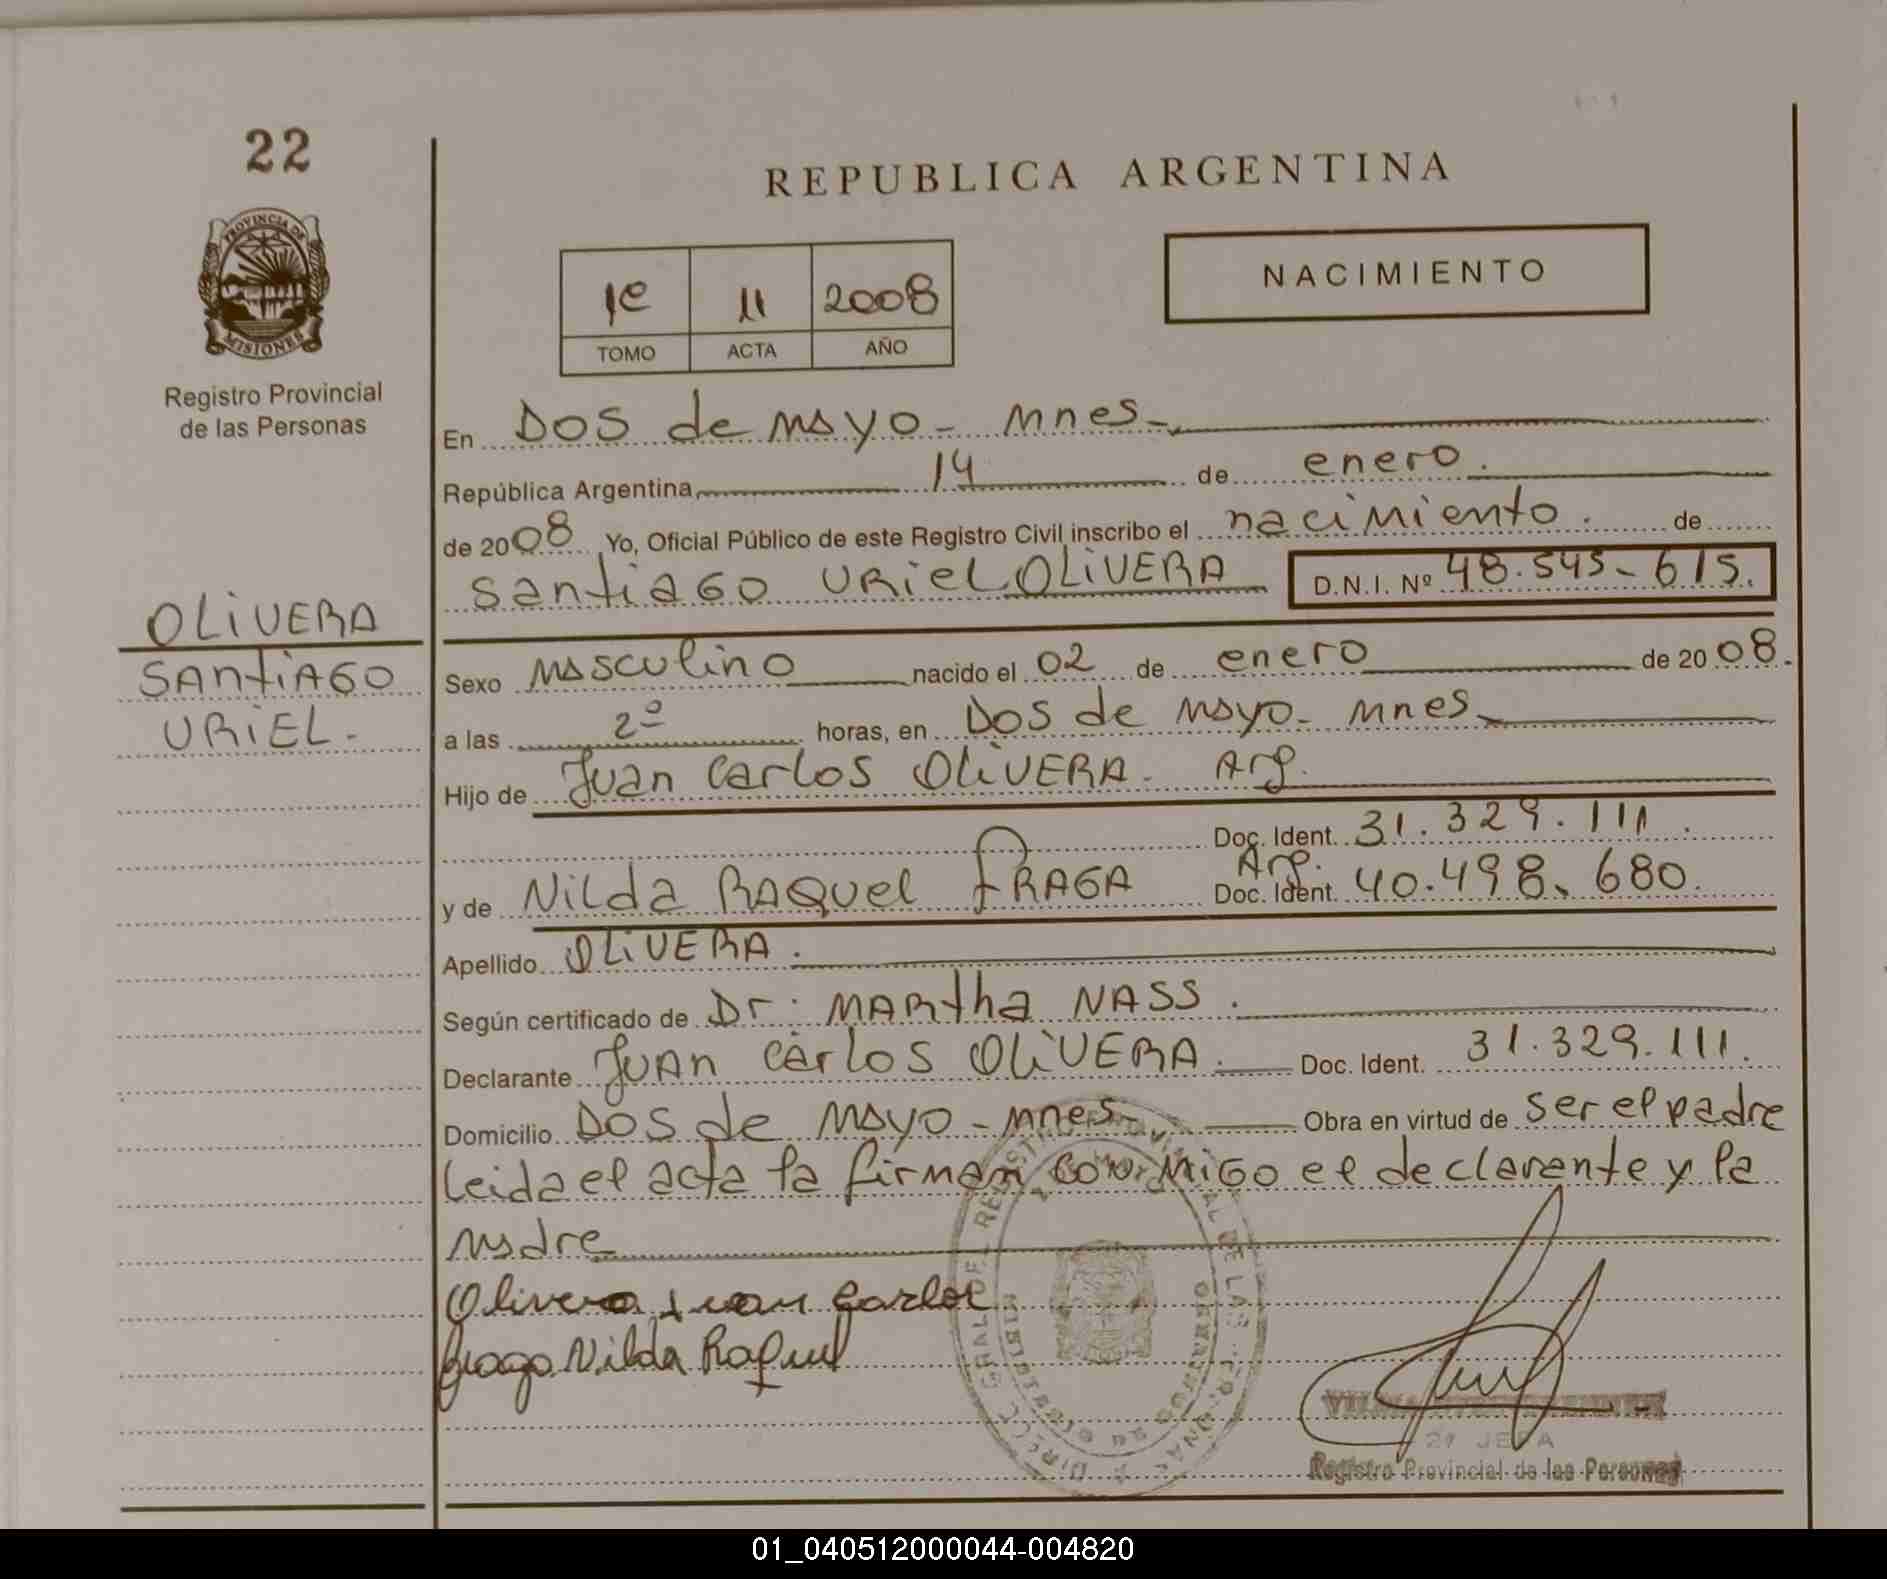 22
PROVINCIA DE
MISIONES
Registro Provincial
de las Personas
REPUBLICA ARGENTINA
1º 11 2008
TOMO ACTA AÑO
NACIMIENTO
En Dos de mayo - mnes -
República Argentina, 14 de enero.
de 2008 Yo, Oficial Público de este Registro Civil inscribo el nacimiento. de
santiago URiel OLiVERA D.N.I. Nº 48.545-615.
OLiVERA
SANtiAGO
URiEL.-
Sexo masculino nacido el 02 de enero de 2008.
a las 2º horas, en Dos de mayo - mnes -
Hijo de Juan Carlos OLiVERA. Arg.
Doc. Ident. 31.329.111.
Arg.
y de Nilda RAQuel fRAGA Doc. Ident. 40.498.680.
Apellido OLiVERA.
Según certificado de Dr: MARtha NASS.
Declarante JUAn carlos OLiVERA. Doc. Ident. 31.329.111.
Domicilio Dos de mayo - mnes - Obra en virtud de ser el padre
Leida el acta la firman conmigo el declarante y la
madre
Olivera Juan Carlos
fraga Nilda Raquel
JEFA
Registro Provincial de las Personas
01_040512000044-004820